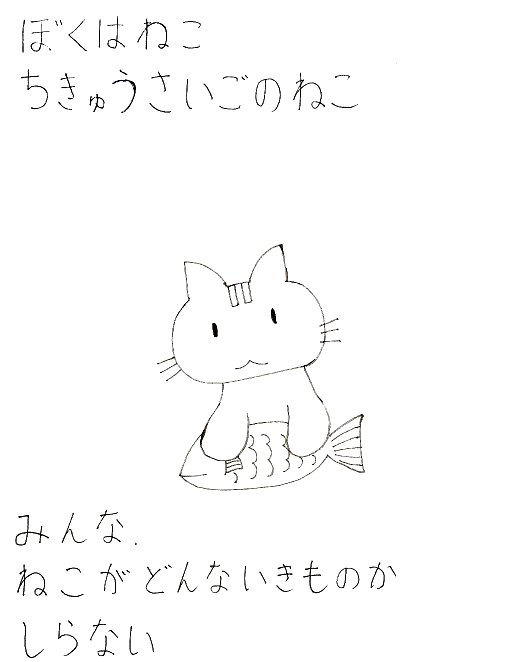 ぼくはねこ
ちきゅうさいごのねこ
みんな.
ねこがどんないきものか
しらない